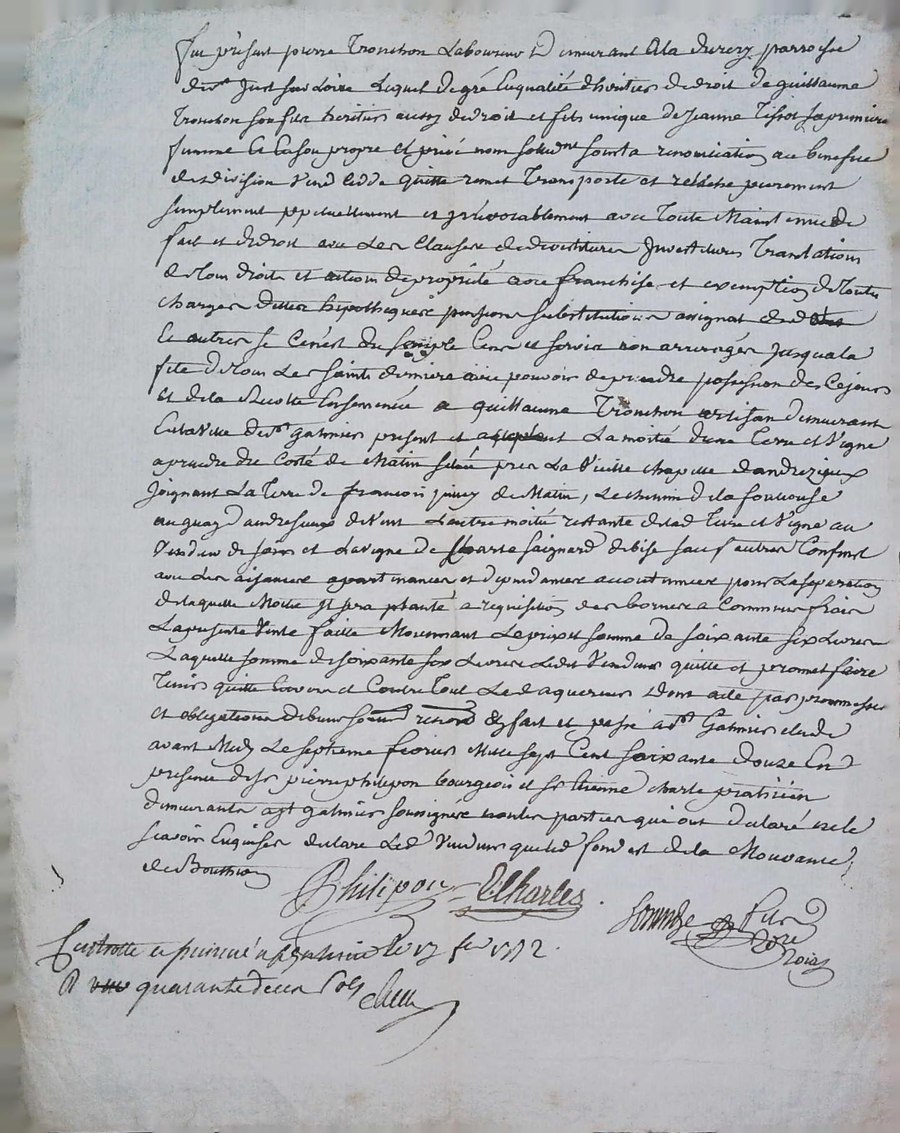 Fut présent pierre Tronchon Laboureur demeurant a la durerÿ parroisse
de st Just sur Loire Lequel de gré En qualité dhéritier de droit de guillaume
Tronchon son fils héritier aussy de droit et fils unique de Jeanne Tissot sa premiere
femme Et En son propre et privé nom solidrement sous la renonciation au benefice
de division Vend cedde quitte remet Transporte et relache purement
simplement ppetuellement et irrévocablement avec Toute Maintenue de
fait et de droit avec Les Clauses de devestitures Investitures Translations
de Tous droits et actions de propriété avec franchise et exemption de Toutes
charges dettes hipotheques pensions substitutions assignat de d
et autres si Cenest du simple Cens et servis non arreragés Jusqua la
fete de Tous Les saints derniere avec pouvoir de prendre possession des Ce jours
Et de la Recolte Ensemencée a guillaume Tronchon artisan demeurant
En la Ville de st galmier present et acceptant La moitié dune Terre et Vigne
a prendre du Costé de Matin située pres La Vieille chapelle dandrezieux
Joignant La Terre de francois de Matin, Le chemin de la fouillouse
au quay dandresieux de Vent Lautre moitié restante de lad Terre et Vigne au
Vendeur de soir et La vigne de Saignard de bise sauf autres Confins
avec Les aisances apartenances et dependances accoutumées pour La separation
de laquelle Moitié Il sera planté a requisition des bornes a Communs frais
La presente Vente faitte Moyennant Le prix et somme de soixante six Livres
Laquelle somme de soixante six Livres Ledit Vendeur quitte et promet faire
Tenir quitte Envers et Contre Tout Led aquereur dont acte par promesses
et obligations Fait et passé a st Galmier etude
avant Midy Le septieme fevrier Mille sept Cent soixante douze En
presence de sr pierre philipon bourgeois et sr Etienne charle praticien
demeurants a st galmier soussignés non les parties qui ont declaré ne le
scavoir Enquises declare Led Vendeur que led fond est de la Mouvance
de Bouthéon
Philipon E Charles

Controllé a st galmier le 17 fer 1772.
R quarante deux sols